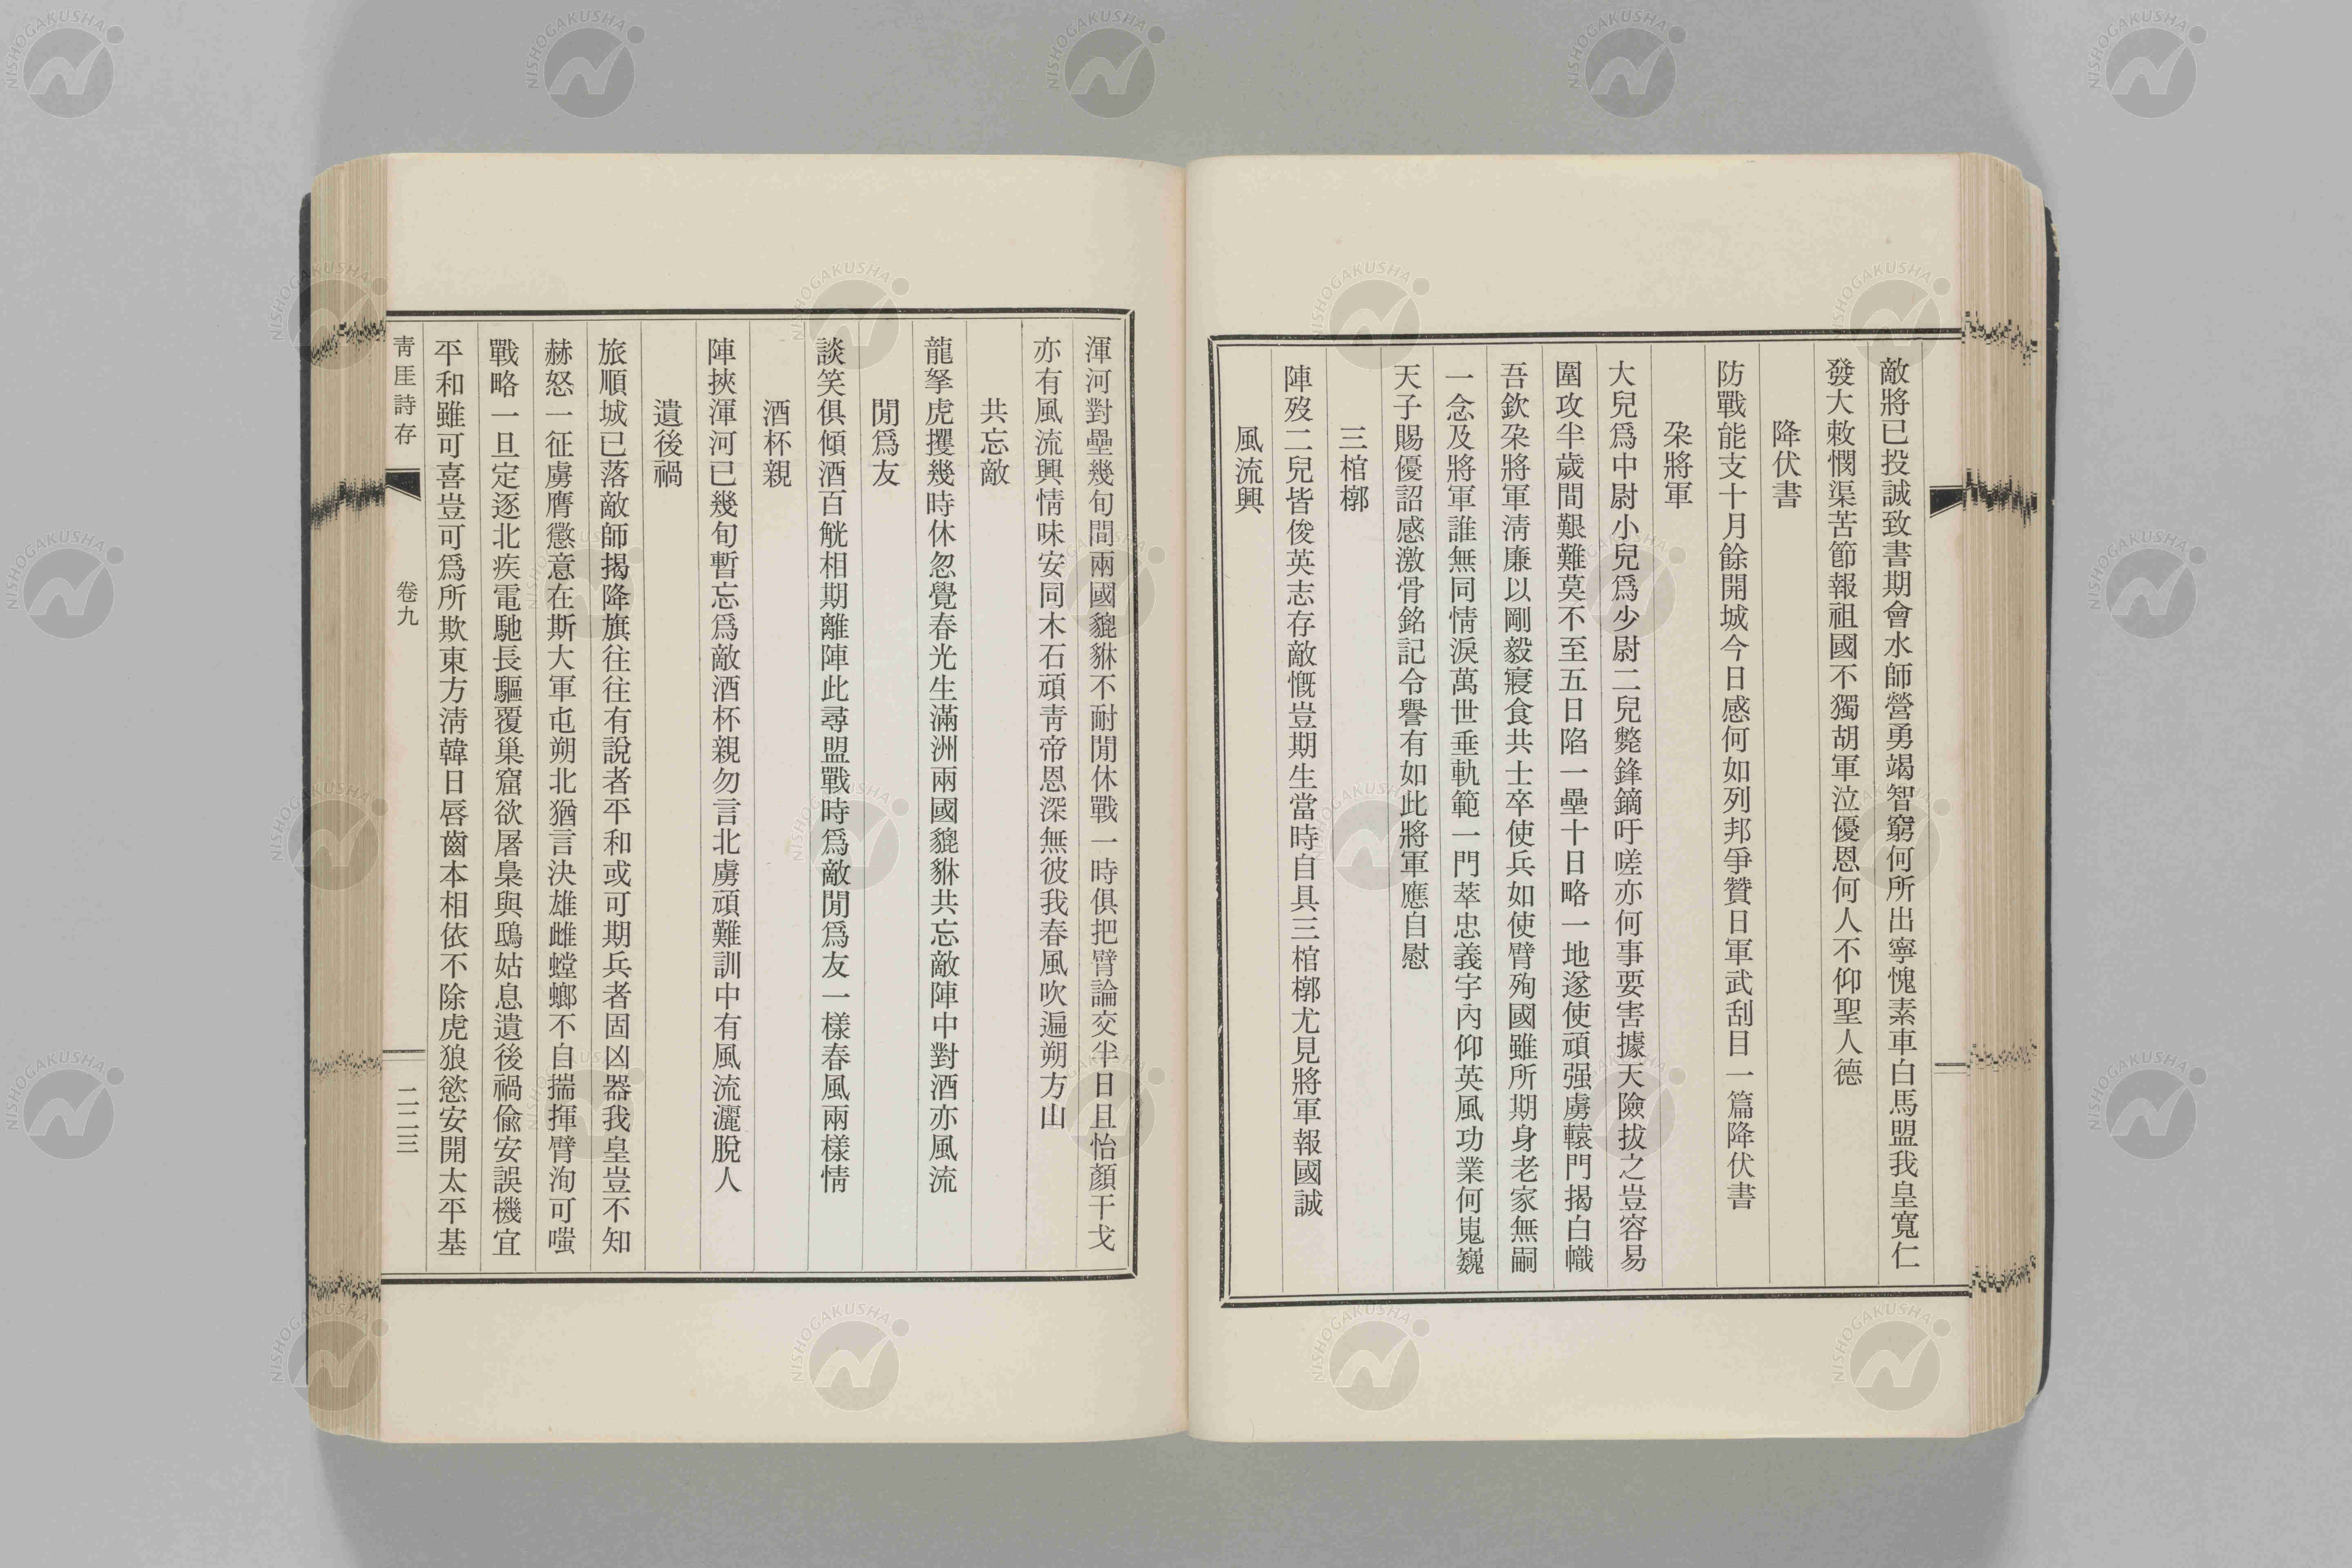 敵將已投誠致書期會水師營勇竭智窮何所出寧愧素車白馬盟我皇寬仁
發大敕憫渠苦節報祖國不獨胡軍泣優恩何人不仰聖人德
降伏書
防戰能支十月餘開城今日感何如列邦爭贊日軍武刮目一篇降伏書
朶將軍
大兒爲中尉小兒爲少尉二兒斃鋒鏑吁嗟亦何事要害據天險拔之豈容易
圍攻半歲間艱難莫不至五日陷一壘十日略一地遂使頑强虜轅門揭白幟
吾欽朶將軍淸廉以剛毅寢食共士卒使兵如使臂殉國雖所期身老家無嗣
一念及將軍誰無同情淚萬世垂軌範一門萃忠義宇內仰英風功業何嵬巍
天子賜優詔感激骨銘記令譽有如此將軍應自慰
三棺槨
陣歿二兒皆俊英志存敵愾豈期生當時自具三棺槨尤見將軍報國誠
風流興
渾河對壘幾旬間兩國貔貅不耐閒休戰一時俱把臂論交半日且怡顏干戈
亦有風流興情味安同木石頑靑帝恩深無彼我春風吹遍朔方山
共忘敵
龍拏虎攫幾時休忽覺春光生滿洲兩國貔貅共忘敵陣中對酒亦風流
閒爲友
談笑俱傾酒百觥相期離陣此尋盟戰時爲敵閒爲友一樣春風兩樣情
酒杯親
陣挾渾河已幾旬暫忘爲敵酒杯親勿言北虜頑難訓中有風流灑脫人
遺後禍
旅順城已落敵師揭降旗往往有說者平和或可期兵者固凶器我皇豈不知
赫怒一征虜膺懲意在斯大軍屯朔北猶言決雄雌螳螂不自揣揮臂洵可嗤
戰略一旦定逐北疾電馳長驅覆巢窟欲屠梟與鴟姑息遺後禍偸安誤機宜
平和雖可喜豈可爲所欺東方淸韓日唇齒本相依不除虎狼慾安開太平基
靑厓詩存
卷九
二二三
NISHOGAKUSHA